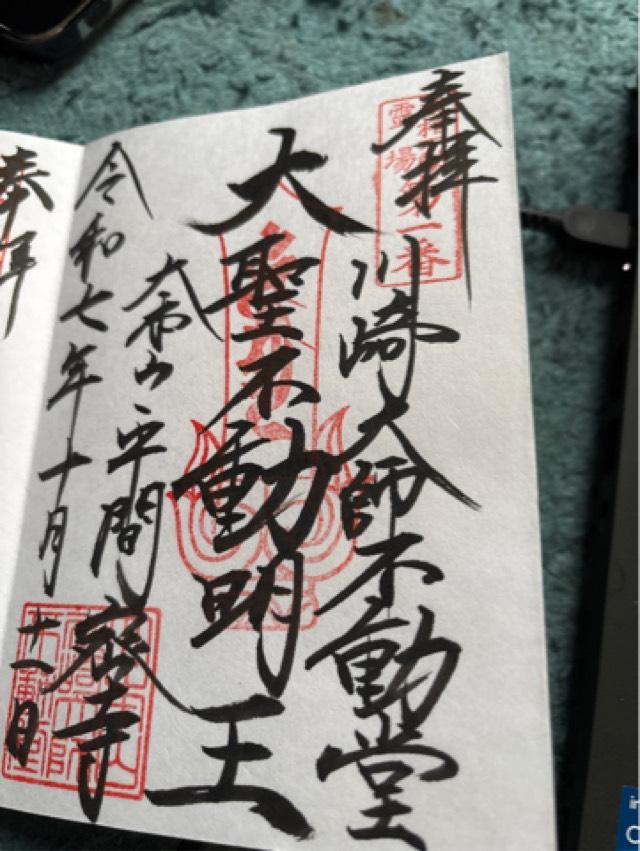 奉拝
靈場第一番
川崎大師不動堂
大聖不動明王
大本山平間寺
令和七年十月十一日
奉拝